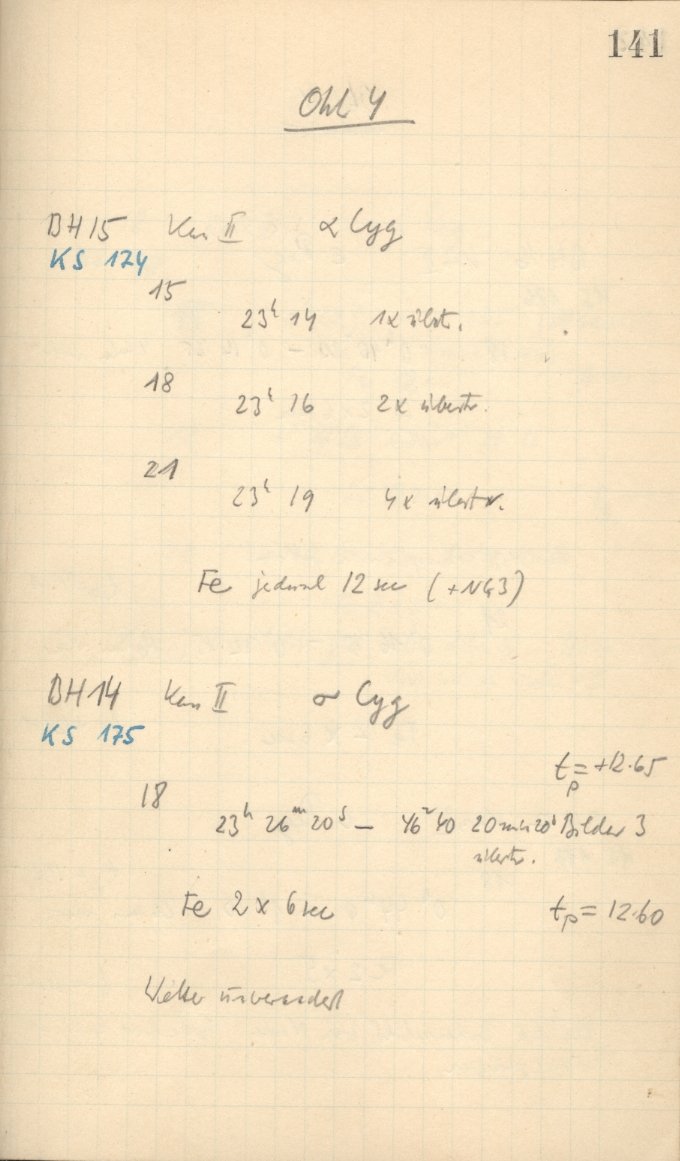 141
Ohl 4
BH15 Kam II α Cyg
KS 174
15
23ʰ 14 1x übertr.
18
23ʰ 16 2x übertr.
21
23ʰ 19 4x übertr.
Fe jedesmal 12 sec (+NG3)
BH14 Kam II σ Cyg
KS 175
tₚ = +12.65
18
23ʰ 26ᵐ 20ˢ – 46ᵐ 40 20 min 20ˢ Bilder 3
übertr.
Fe 2 x 6 sec tₚ = 12.60
Wetter unverändert